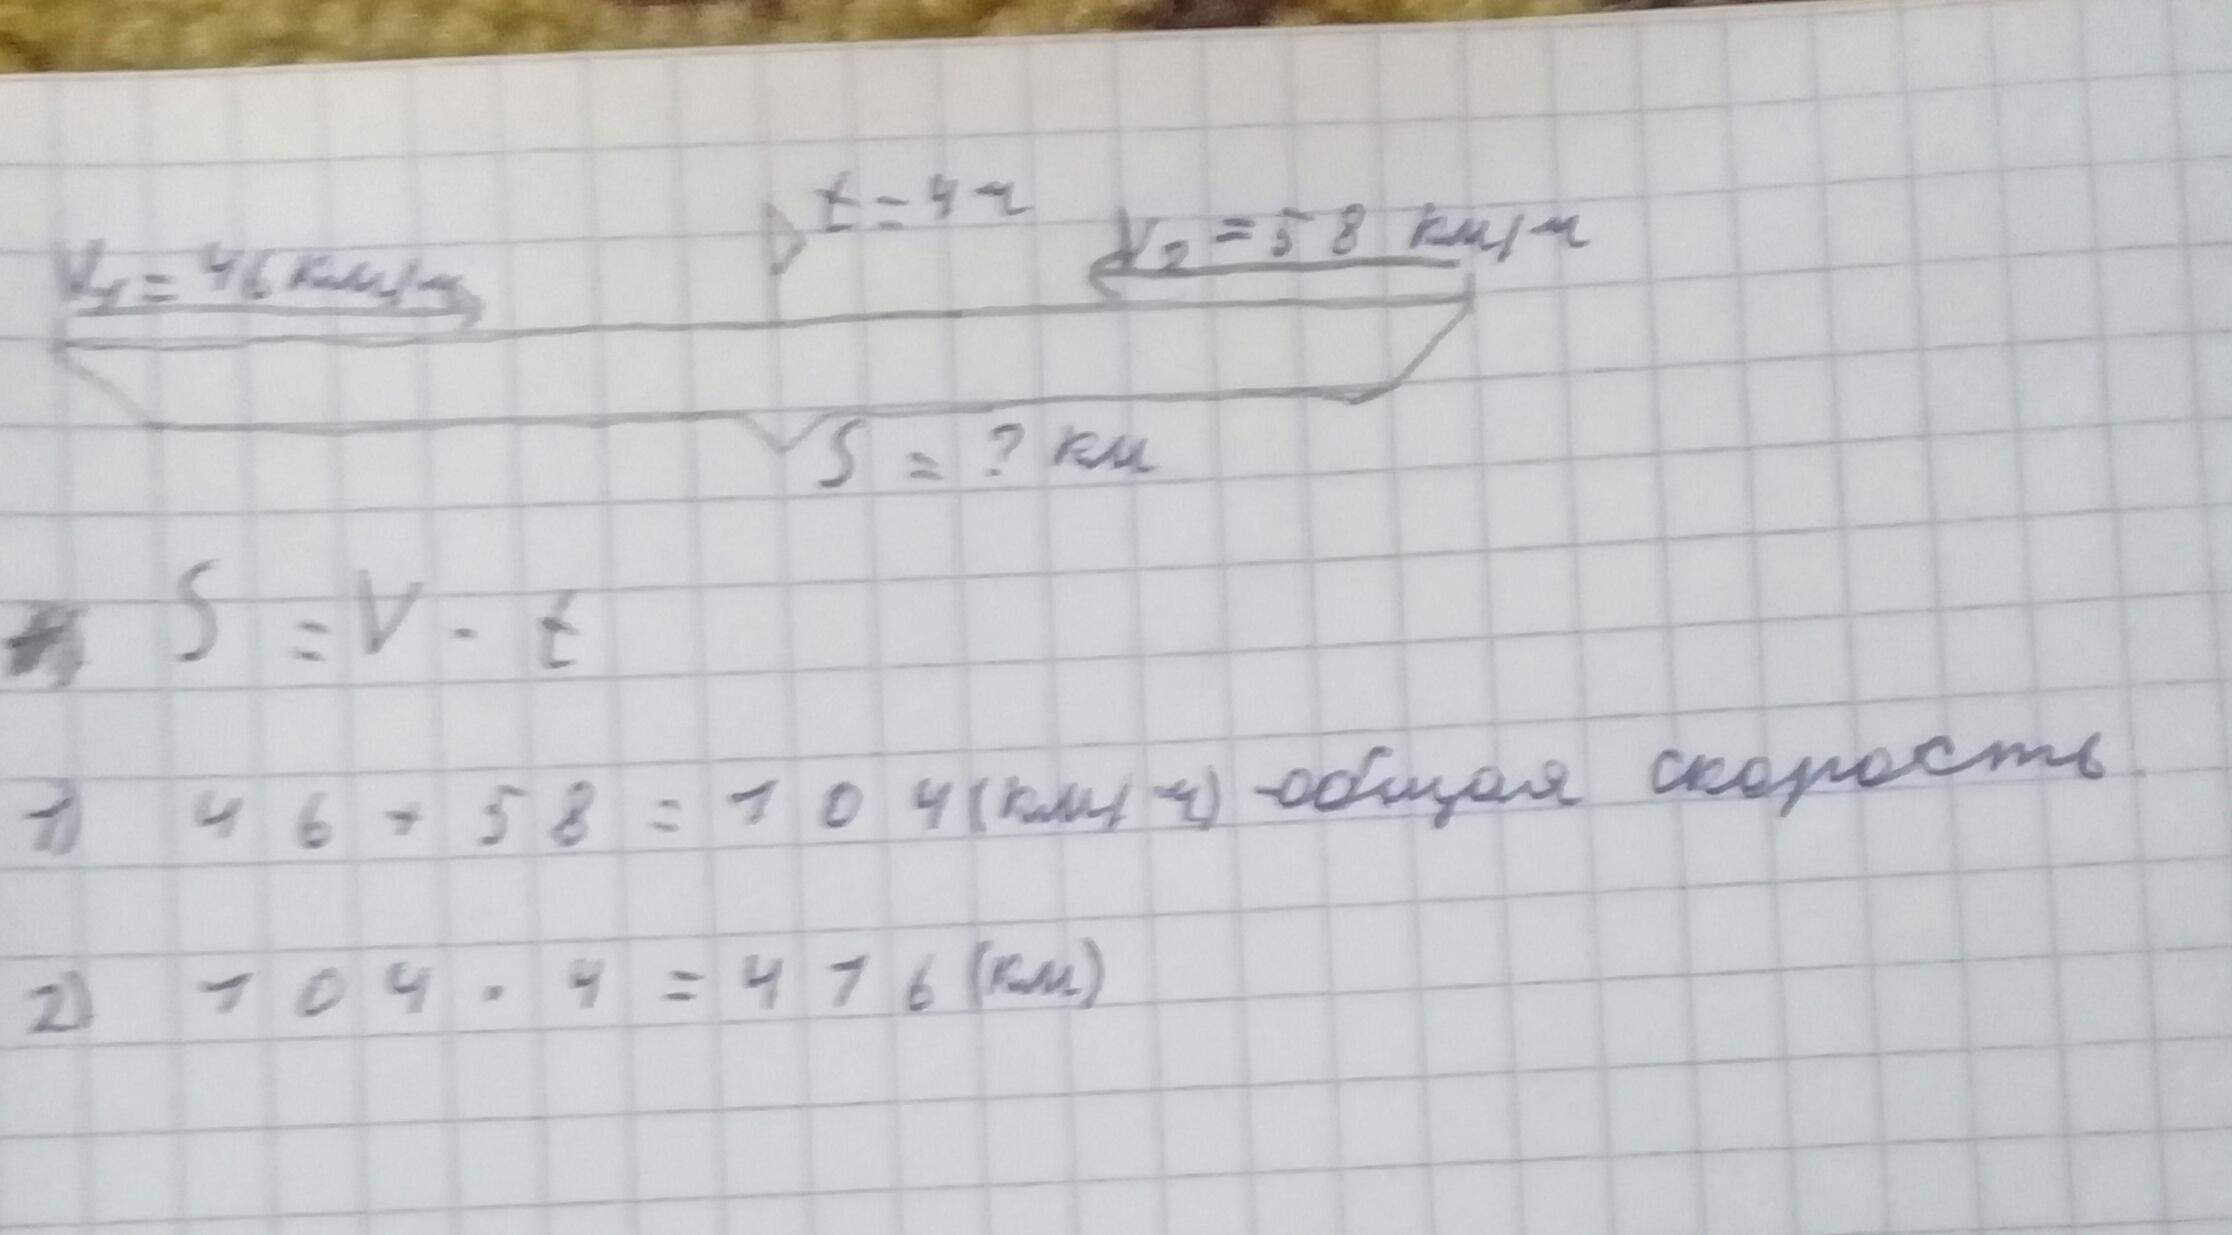 t = 4 ч
V₁ = 46 км/ч
V₂ = 58 км/ч
S = ? км
S = V · t
1) 46 + 58 = 104 (км/ч) - общая скорость
2) 104 · 4 = 416 (км)